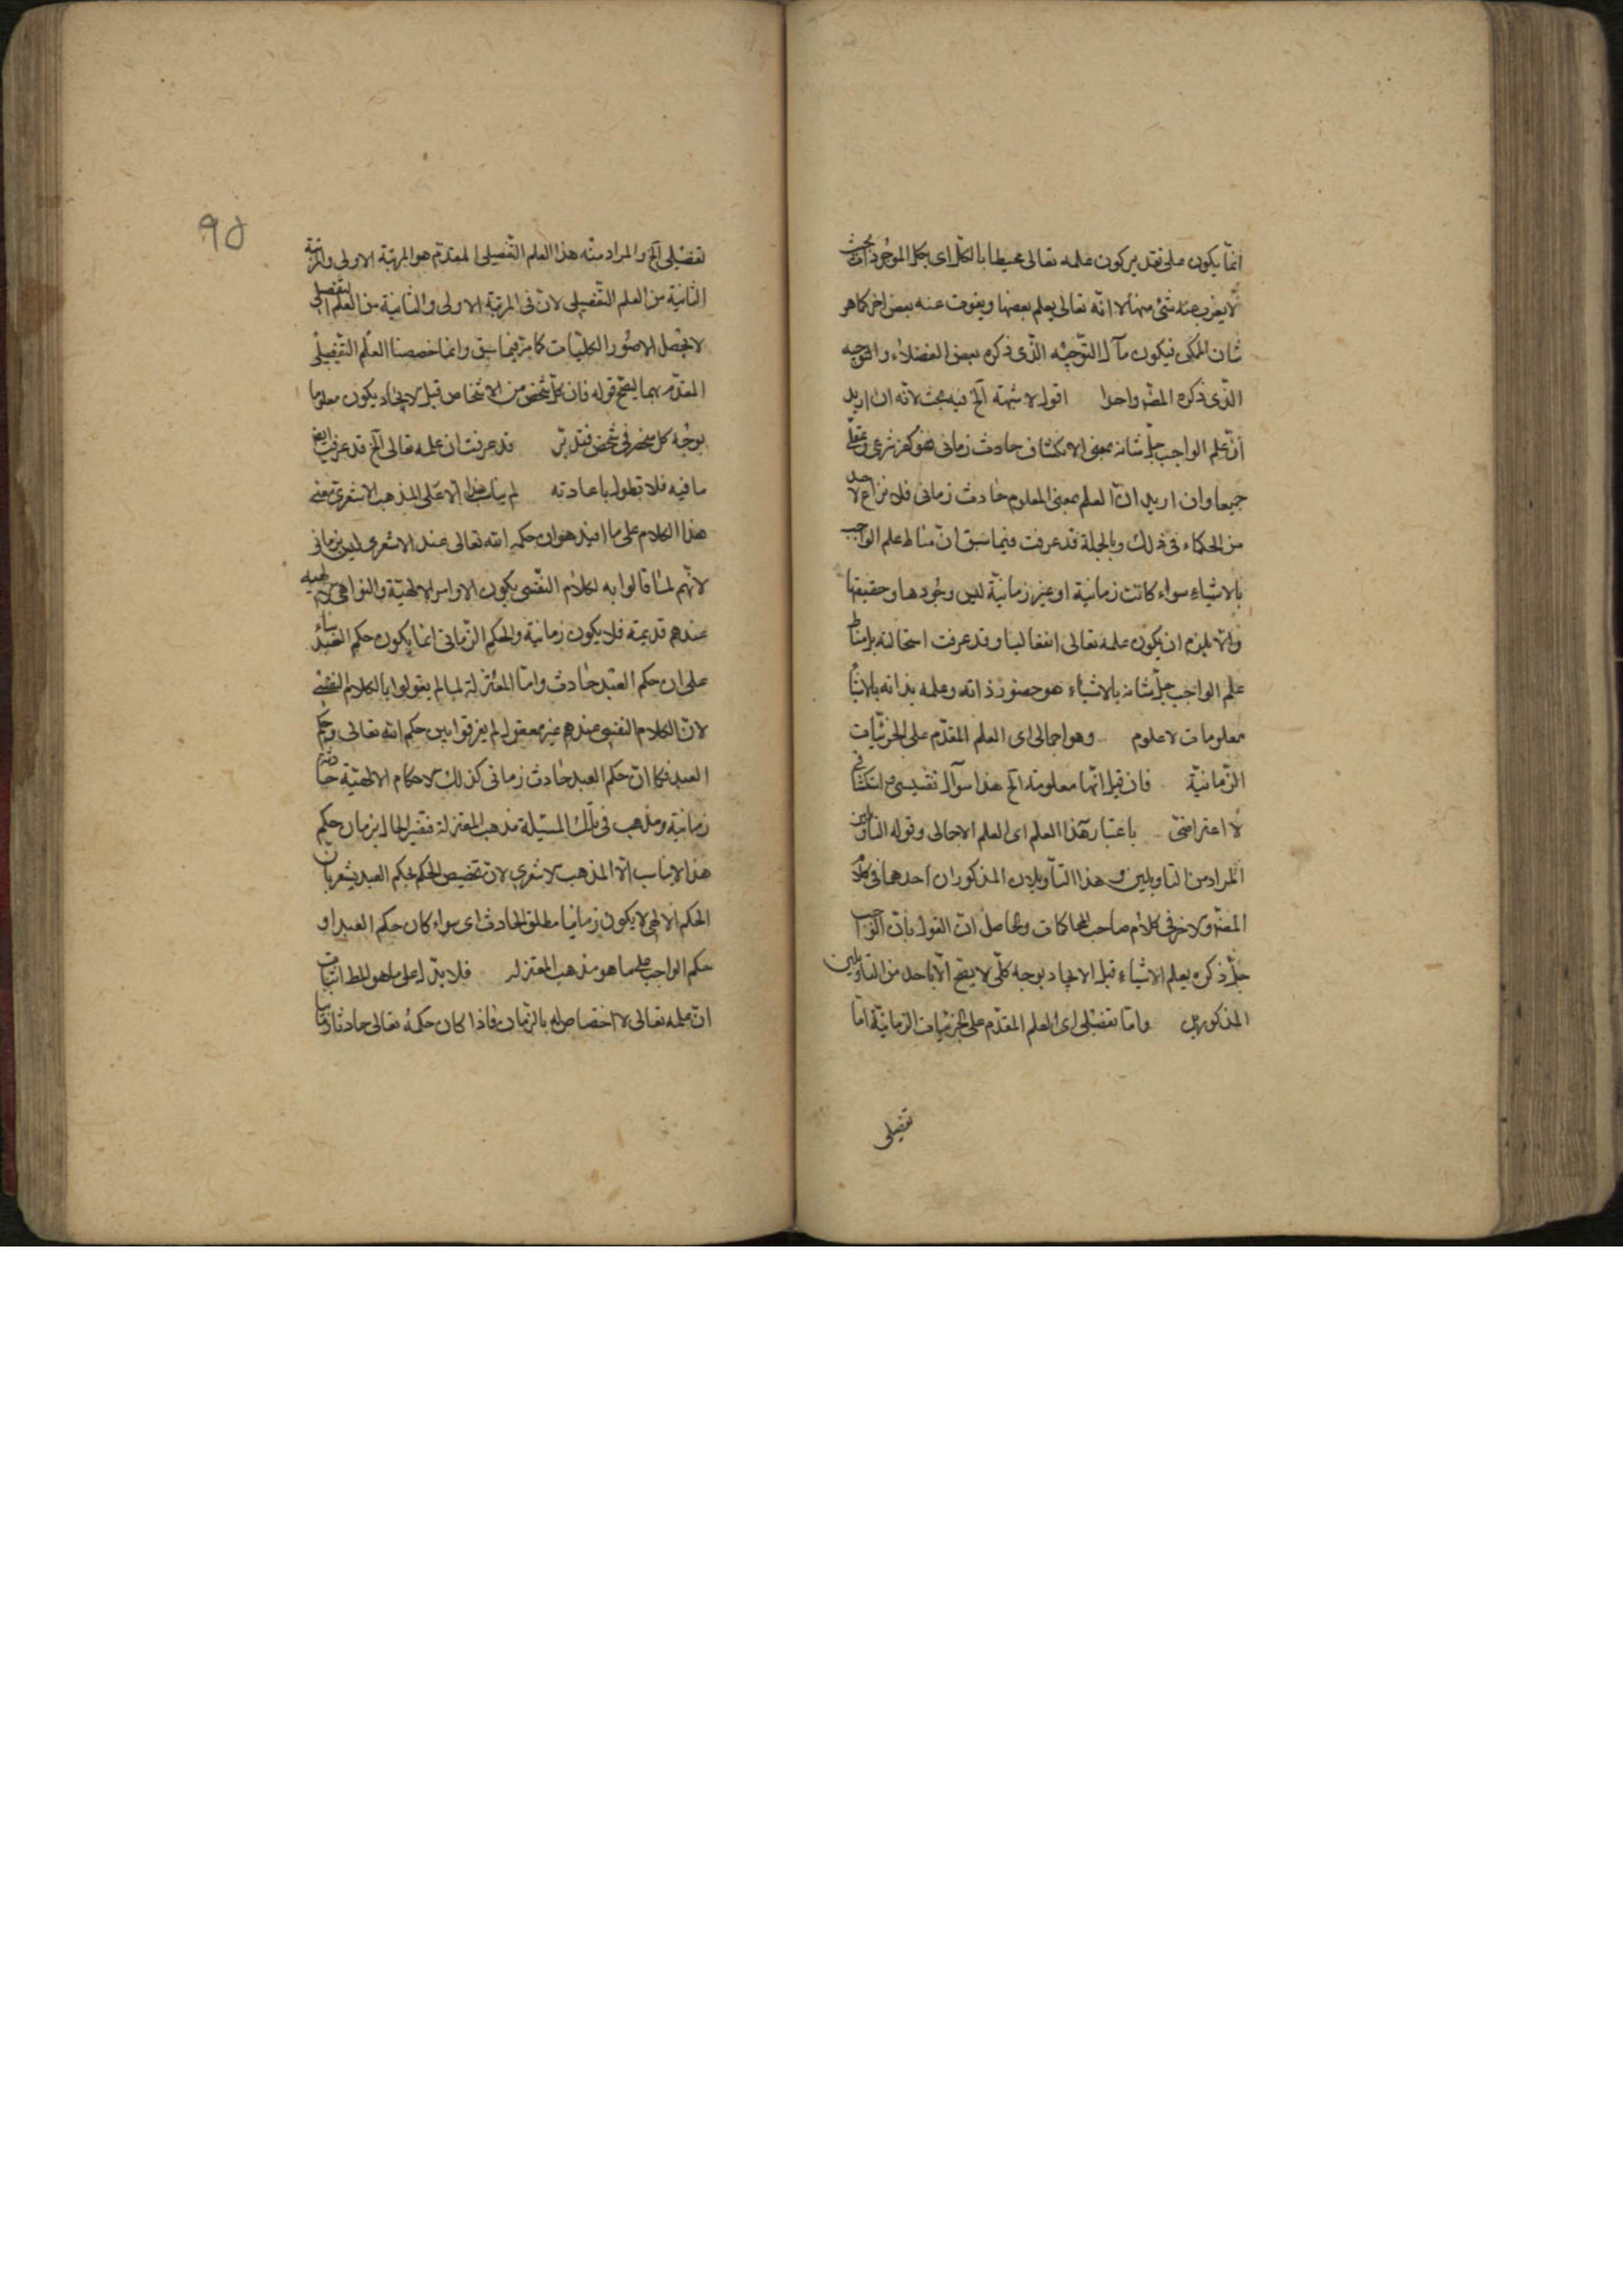 انما يكون على تقدير كون علمه تعالى محيطا بالكل اى بكل الموجودات بحيث
لا يعزب عنه شئ منها لا انه تعالى يعلم بعضها ويفوت عنه بعض اخر كما هو
شان الممكن فيكون مآل التوجيه الذى ذكره بعض الفضلاء والتوجيه
الذى ذكره المصـ واحدا اقول لا شبهة الخ فيه بحث لانه ان اريد
ان علم الواجب جل شانه بمعنى الانكشاف حادث زمانى فهو كفر شرعى وعقلى
جميعا وان اريد ان العلم بمعنى المعلوم حادث زمانى فلا نزاع لاحد
من الحكماء فى ذلك وبالجملة قد عرفت فيما سبق ان مناط علم الواجب
بالاشياء سواء كانت زمانية او غير زمانية ليس وجودها وحقيقتها
والا يلزم ان يكون علمه تعالى انفعاليا وقد عرفت استحالته بل مناط
علم الواجب جل شانه بالاشياء هو حضور ذاته وعلمه بذاته بالاشياء
معلومات لا علوم وهو اجمالى اى العلم المقدم على الجزئيات
الزمانية فان قيل انها معلومة الخ هذا سؤال تفسيرى استكشافى
لا اعتراضى باعتبار هذا العلم اى العلم الاجمالى وقوله التاويلين
المراد من التاويلين هذا التاويلان المذكوران احدهما فى كلام
المصـ والاخر فى كلام صاحب المحاكات والحاصل ان القول بان الواجب
جل ذكره يعلم الاشياء قبل الايجاد بوجه كلى لا يصح الا باحد من التاويلين
المذكورين واما تفصيلى اى العلم المقدم على الجزئيات الزمانية اما
تفصيلى
٩٥
تفصيلى الخ والمراد منه هذا العلم التفصيلى المقدم هو المرتبة الاولى والمرتبة
الثانية من العلم التفصيلى لان فى المرتبة الاولى والثانية من العلم التفصيلى
لا تحصل الا صور الكليات كما مر فيما سبق وانما خصصنا العلم التفصيلى
المقدم بهما ليصح قوله فان كل شخص من الاشخاص قبل الايجاد يكون معلوما
بوجه كلى منحصر فى شخص فتدبر قد عرفت ان علمه تعالى الخ قد عرفت ايضا
ما فيه فلا نطول باعادته لم يناسب هذا الا على المذهب الاشعرى معنى
هذا الكلام على ما افيد هو ان حكم الله تعالى عند الاشعرى ليس بزمانى
لانهم لما قالوا به لكلام النفسى يكون الاوامر الالهية والنواهى الالهية
عندهم قديمة فلا يكون زمانية والحكم الزمانى انما يكون حكم العبد بناء
على ان حكم العبد حادث واما المعتزلة لما لم يقولوا بالكلام النفسى
لان الكلام النفسى عندهم غير معقول لم يفرقوا بين حكم الله تعالى وحكم
العبد فكما ان حكم العبد حادث زمانى كذلك الاحكام الالهية حادثة
زمانية ومذهب فى تلك المسئلة مذهب المعتزلة فتفسير الحال بزمان حكم
هذا لا يناسب الا المذهب الاشعرى لان تخصيص الحكم بحكم العبد يشعر بان
الحكم الالهى لا يكون زمانيا مطلق الحادث اى سواء كان حكم العبد او
حكم الواجب على ما هو مذهب المعتزلة فلا يدل على ما هو المط اثبات
ان علمه تعالى لا اختصاص له بالزمان فاذا كان حكمه تعالى حادثا زمانيا